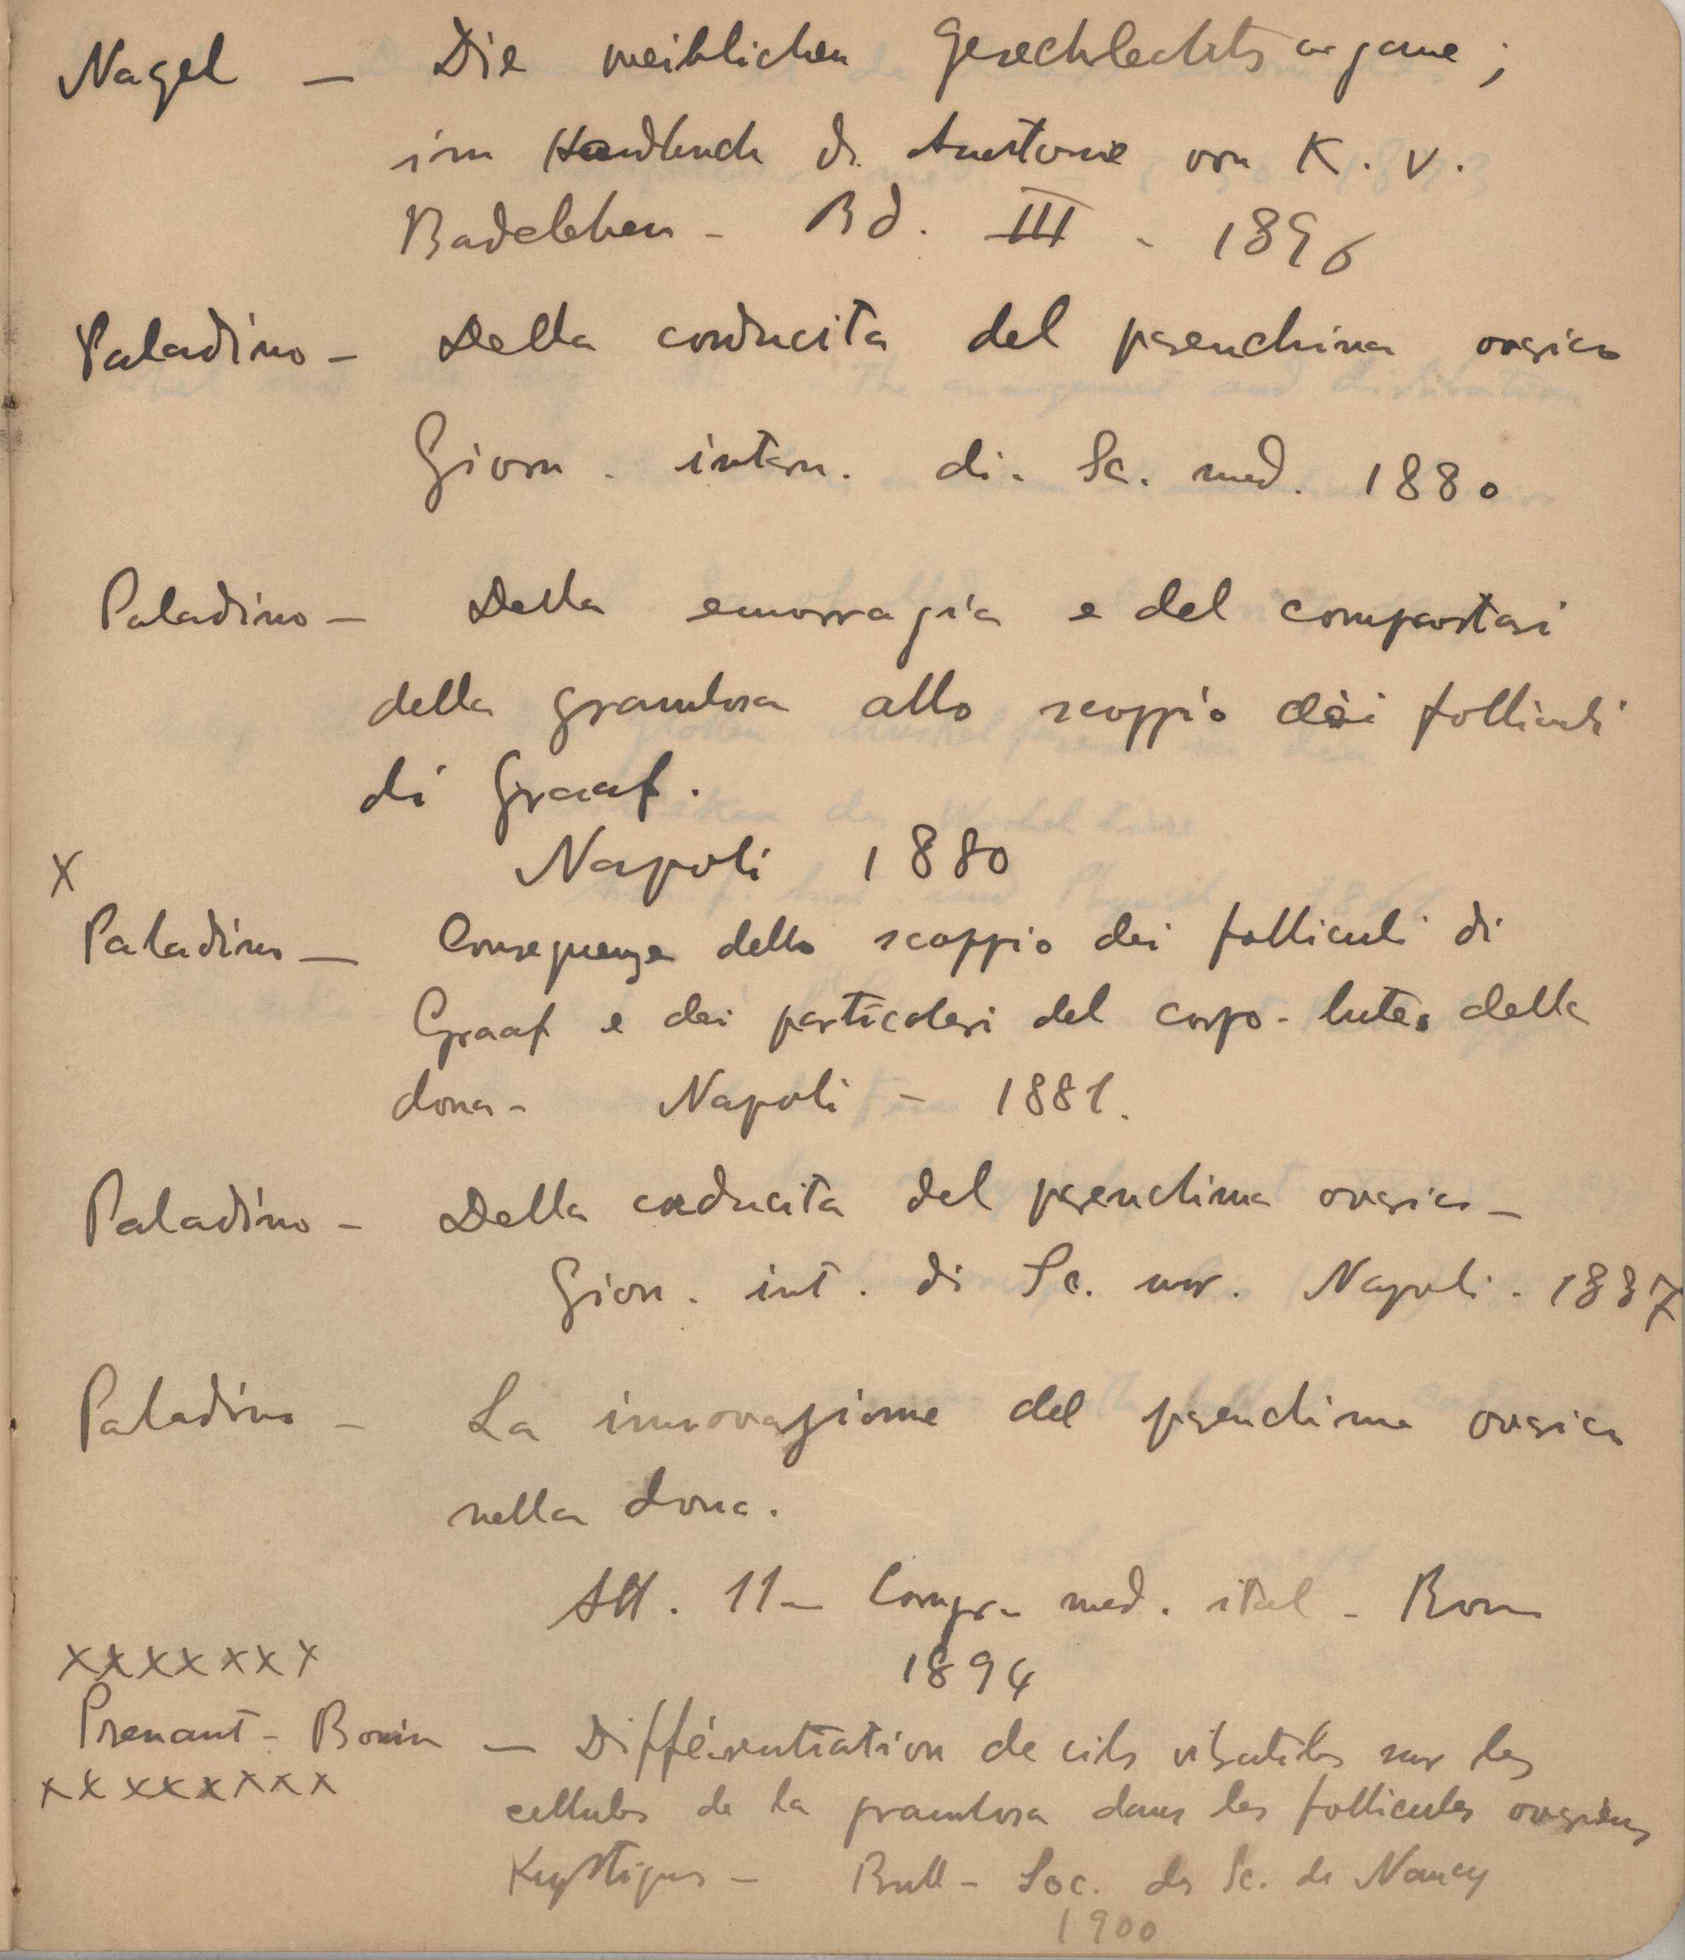 Nagel — Die weiblichen Geschlechtsorgane ;
im Handbuch d. Anatomie von K. v.
Badeleben - Bd. III - 1896
Paladino - Della caducita del parenchima ovarico
Giorn. intern. di. Sc. med. 1880
Paladino - Della emorragia e del comportasi
della granulosa allo scoppio dei follicoli
di Graaf.
Napoli 1880
X
Paladino — Consequenze dello scoppio dei follicoli di
Graaf e dei particolari del corpo - luteo della
dona - Napoli - 1881.
Paladino - Della caducita del parenchima ovarico -
Gion. int. di Sc. Napoli. 1887
Paladino - La innovazione del parenchima ovarico
nella dona.
Att. 11 - Congr - med. ital - Rom
1894
xxxxxxx
Prenant - Bouin — Différentiation de cils vibratiles sur les
xxxxxxxx
cellules de la granulosa dans les follicules ovariens
Kystiques - Bull - Soc. des Sc. de Nancy
1900